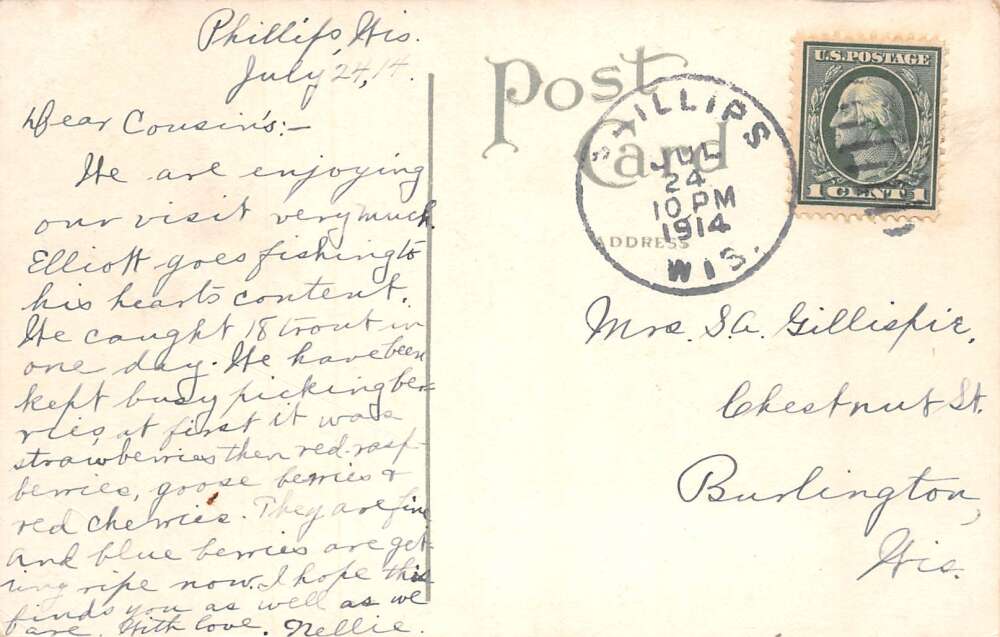 Phillips, Wis.
July 24, 14.
Dear Cousin's:-
We are enjoying
our visit very much.
Elliott goes fishing to
his hearts content.
He caught 18 trout in
one day. We have been
kept busy picking ber-
ries, at first it was
strawberries then red-rasp-
berries, goose berries &
red cherries. They are fine
and blue berries are get-
ting ripe now. I hope this
finds you as well as we
are. With love. Nellie.
Post
Card
ADDRESS
PHILLIPS
JUL
24
10 PM
1914
WIS.
U.S. POSTAGE
1 CENT 1
Mrs. S.A. Gillispie,
Chestnut St.
Burlington,
Wis.